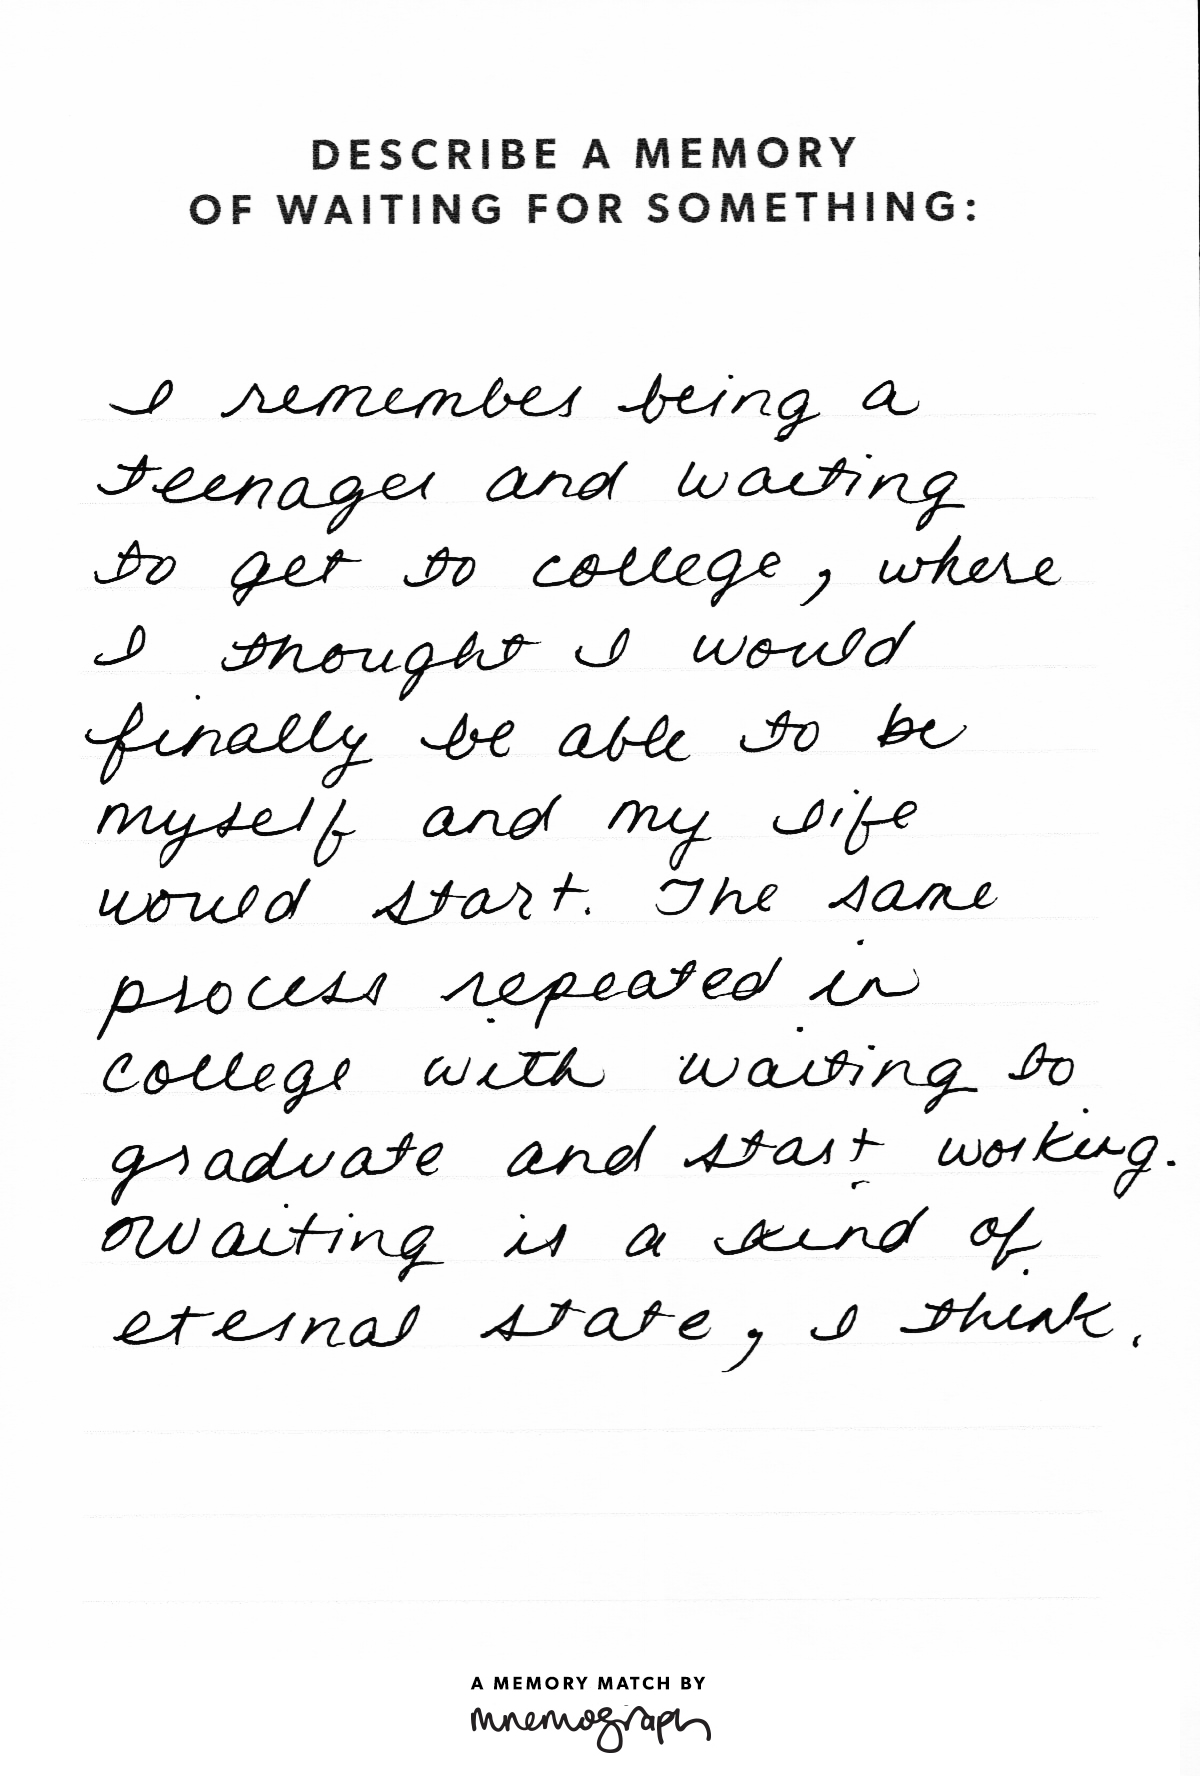 DESCRIBE A MEMORY
OF WAITING FOR SOMETHING:
I remember being a
teenager and waiting
to get to college, where
I thought I would
finally be able to be
myself and my life
would start. The same
process repeated in
college with waiting to
graduate and start working.
Waiting is a kind of
eternal state, I think.
A MEMORY MATCH BY
mnemograph